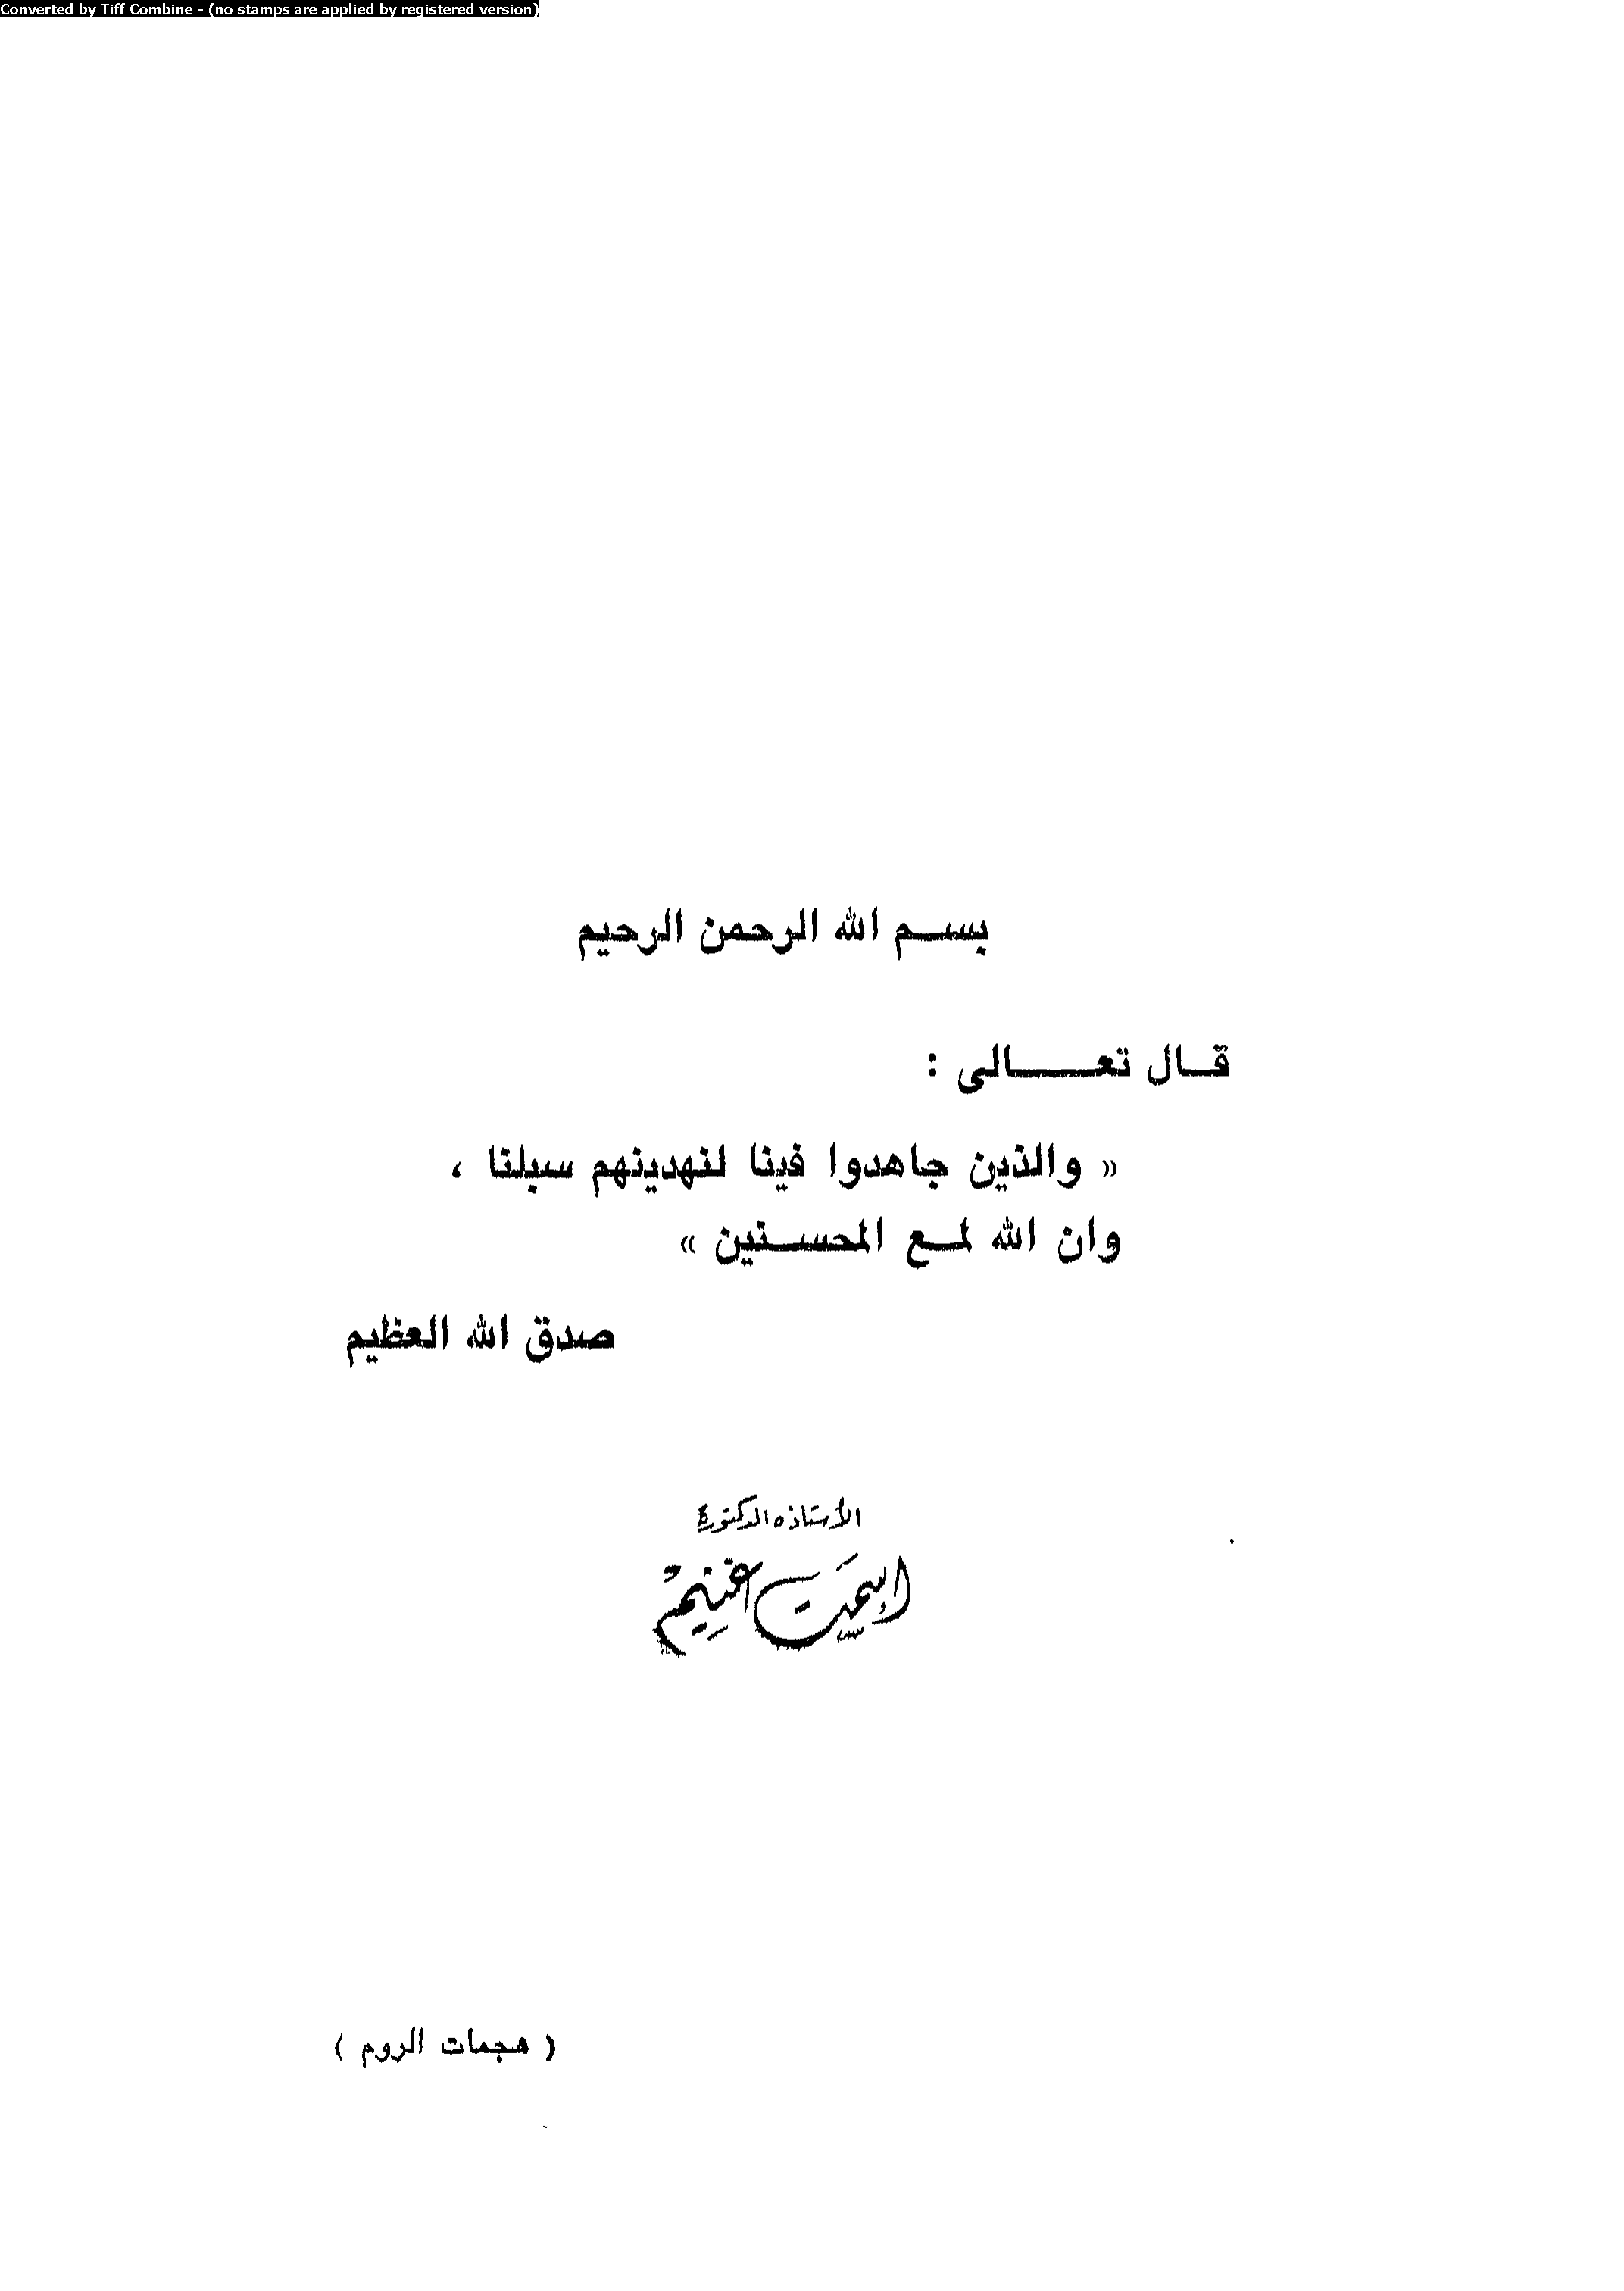 Converted by Tiff Combine - (no stamps are applied by registered version)
بسم الله الرحمن الرحيم
قال تعالى :
« والذين جاهدوا فينا لنهدينهم سبلنا ،
وان الله لمع المحسنين »
صدق الله العظيم
الأستاذه الدكتورة
إسمت غنيم
( هجمات الروم )